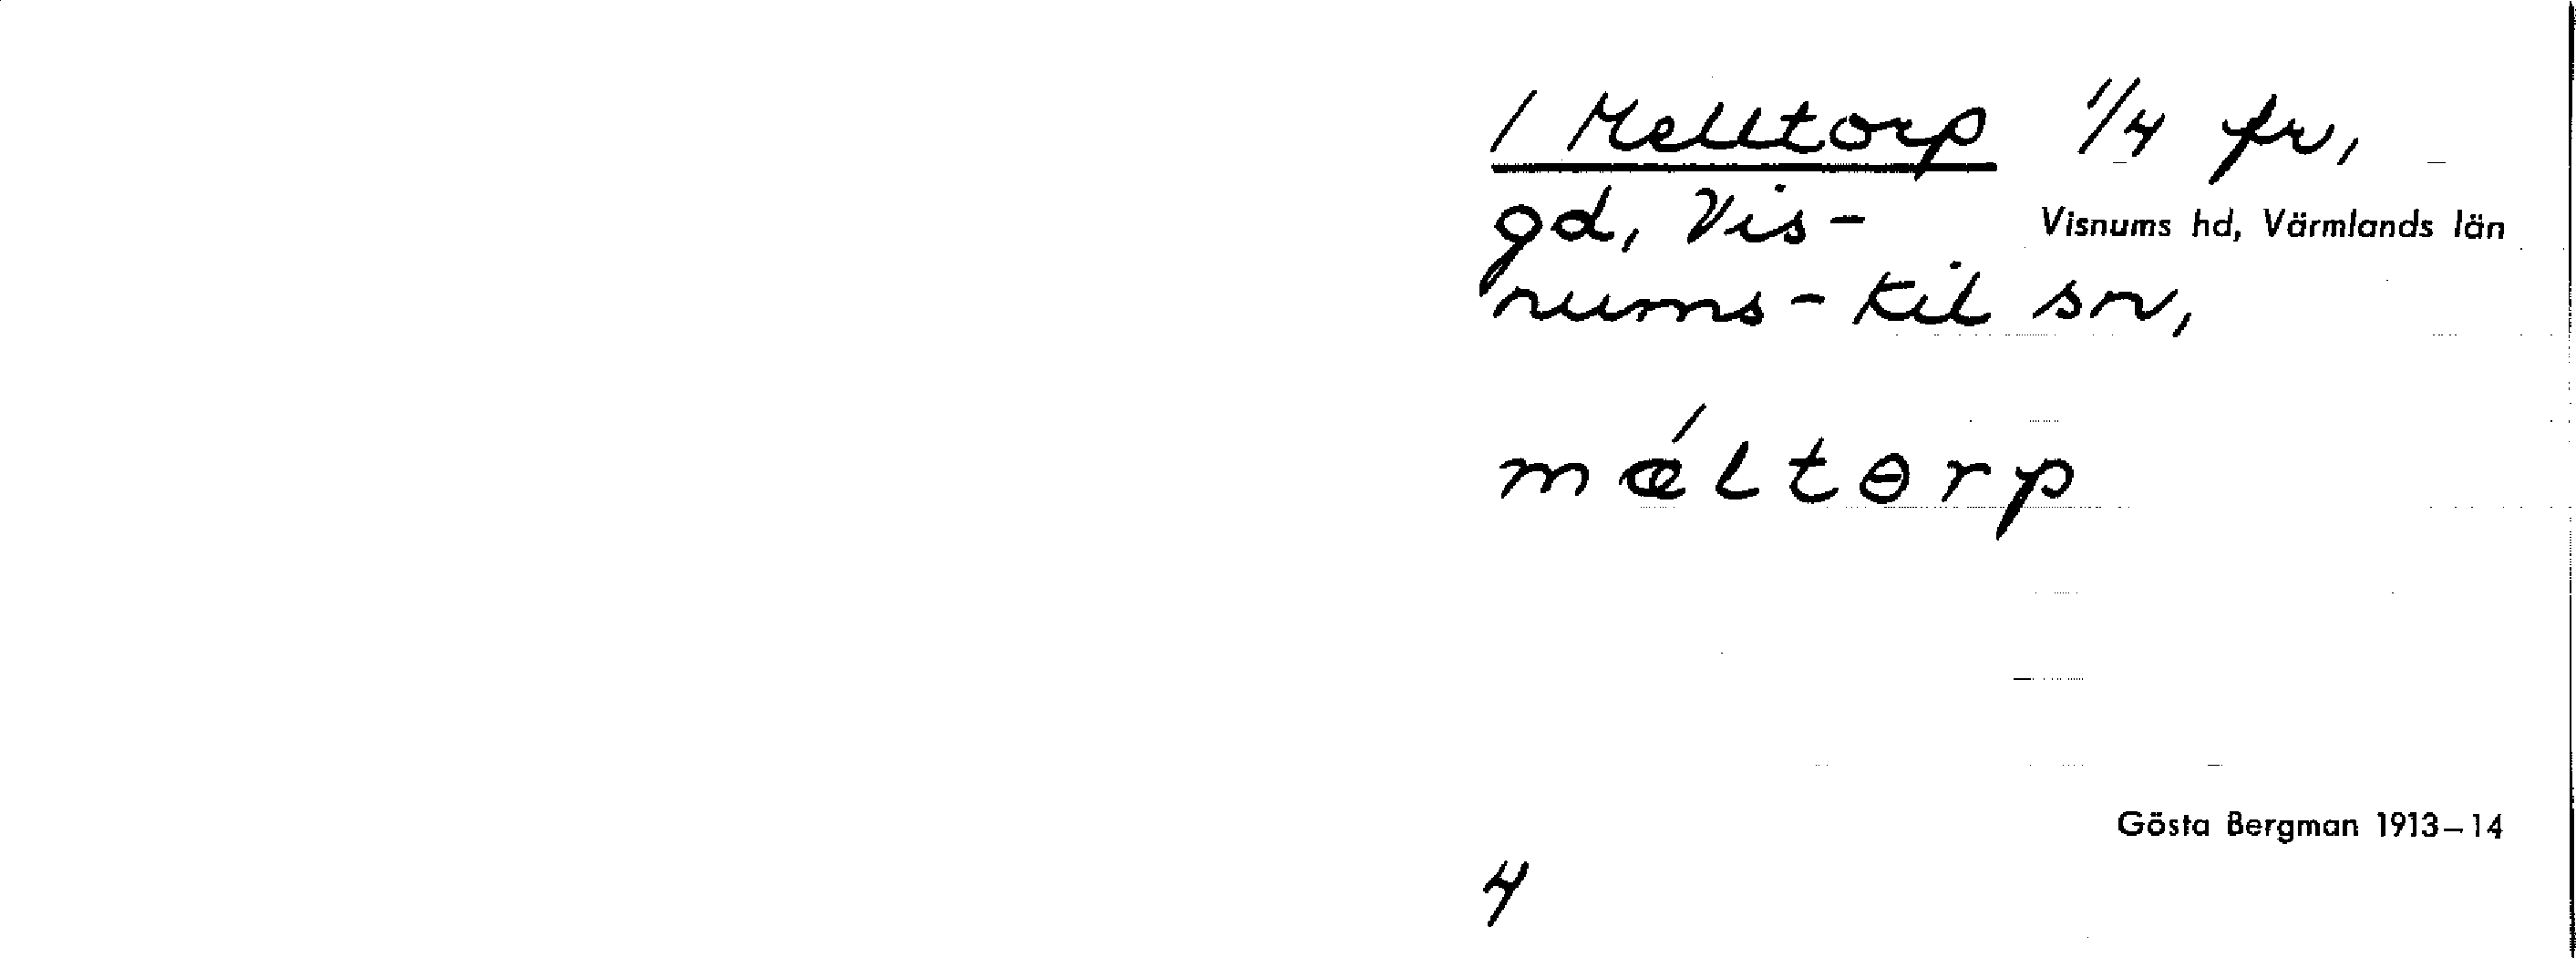 / Melltorp 1/4 fr,
gd, Vis- Visnums hd, Värmlands län
nums-Kil sn,
mǽltɵrp
Gösta Bergman 1913–14
4